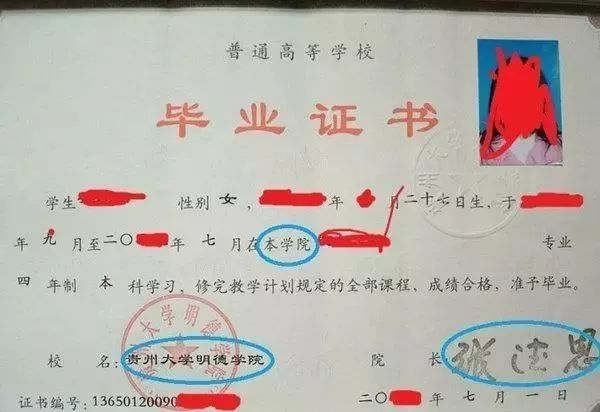 普通高等学校
毕业证书
学生 性别 女, 年 月二十七日生,于
年 九 月至二〇 年 七 月在本学院 专业
四 年制 本 科学习,修完教学计划规定的全部课程,成绩合格,准予毕业。
校 名:贵州大学明德学院 院 长
证书编号:13650120090 二〇 年 七 月 一 日